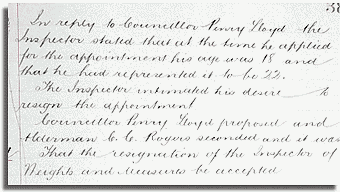 38
In reply to Councillor Penry Lloyd the
Inspector stated that at the time he applied
for the appointment his age was 18 and
that he had represented it to be 22.
The Inspector intimated his desire to
resign the appointment
Councillor Penry Lloyd proposed and
Alderman C. C. Rogers seconded and it was
That the resignation of the Inspector of
Weights and Measures be accepted